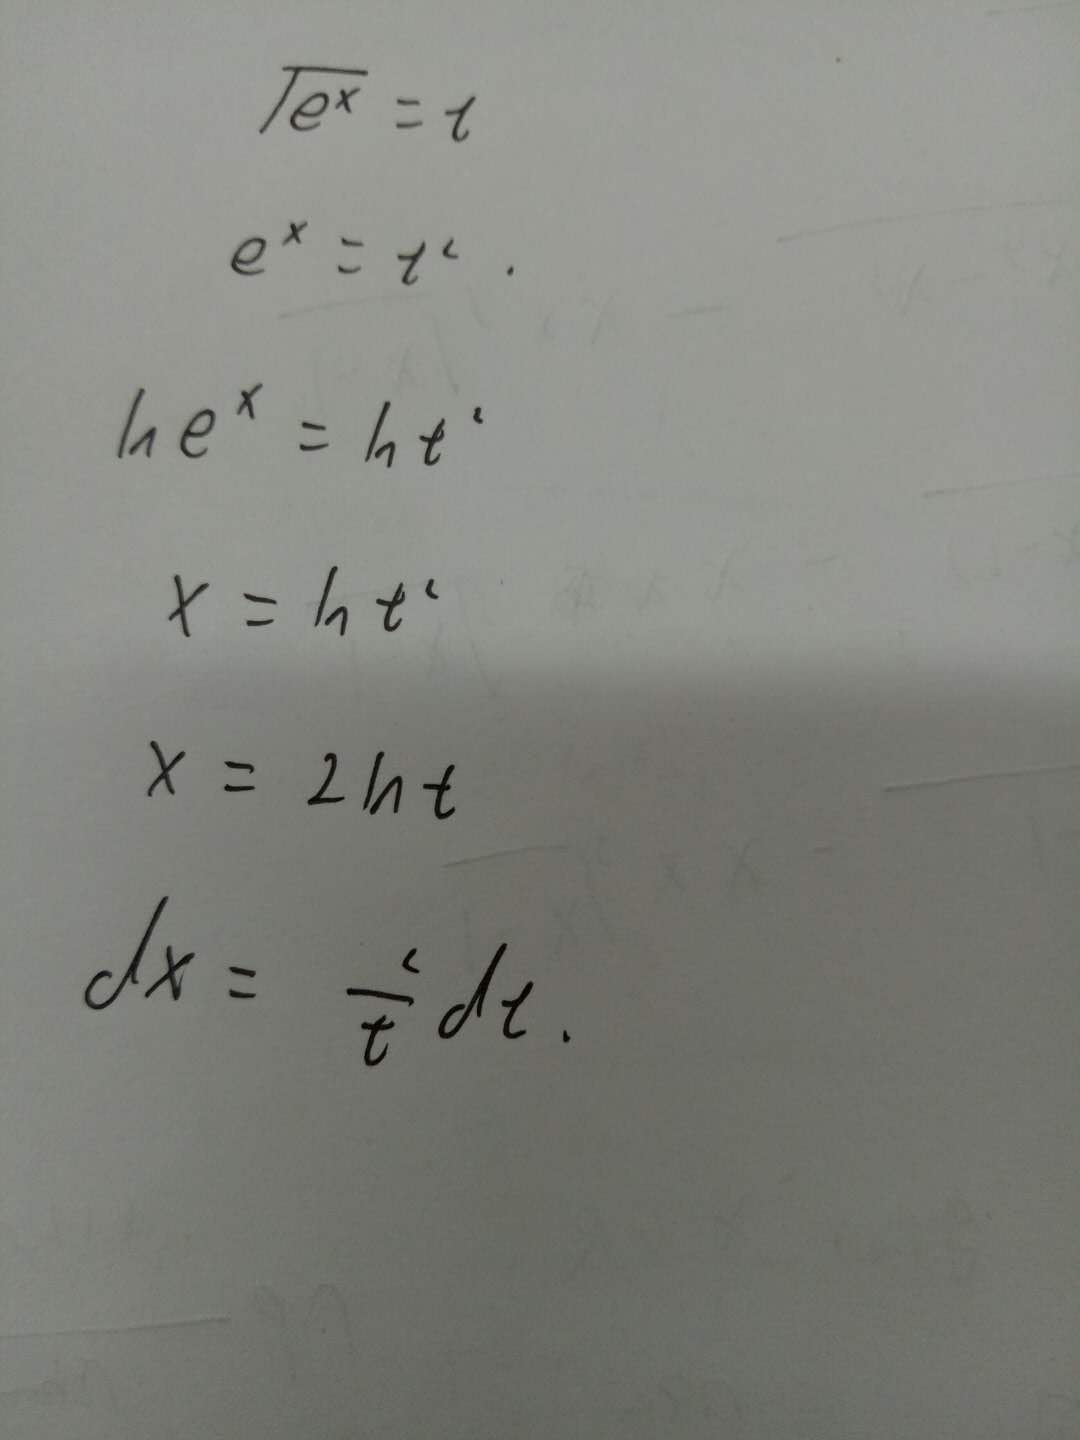 √eˣ = t
eˣ = t² .
ln eˣ = ln t²
x = ln t²
x = 2 ln t
dx = 2/t dt .